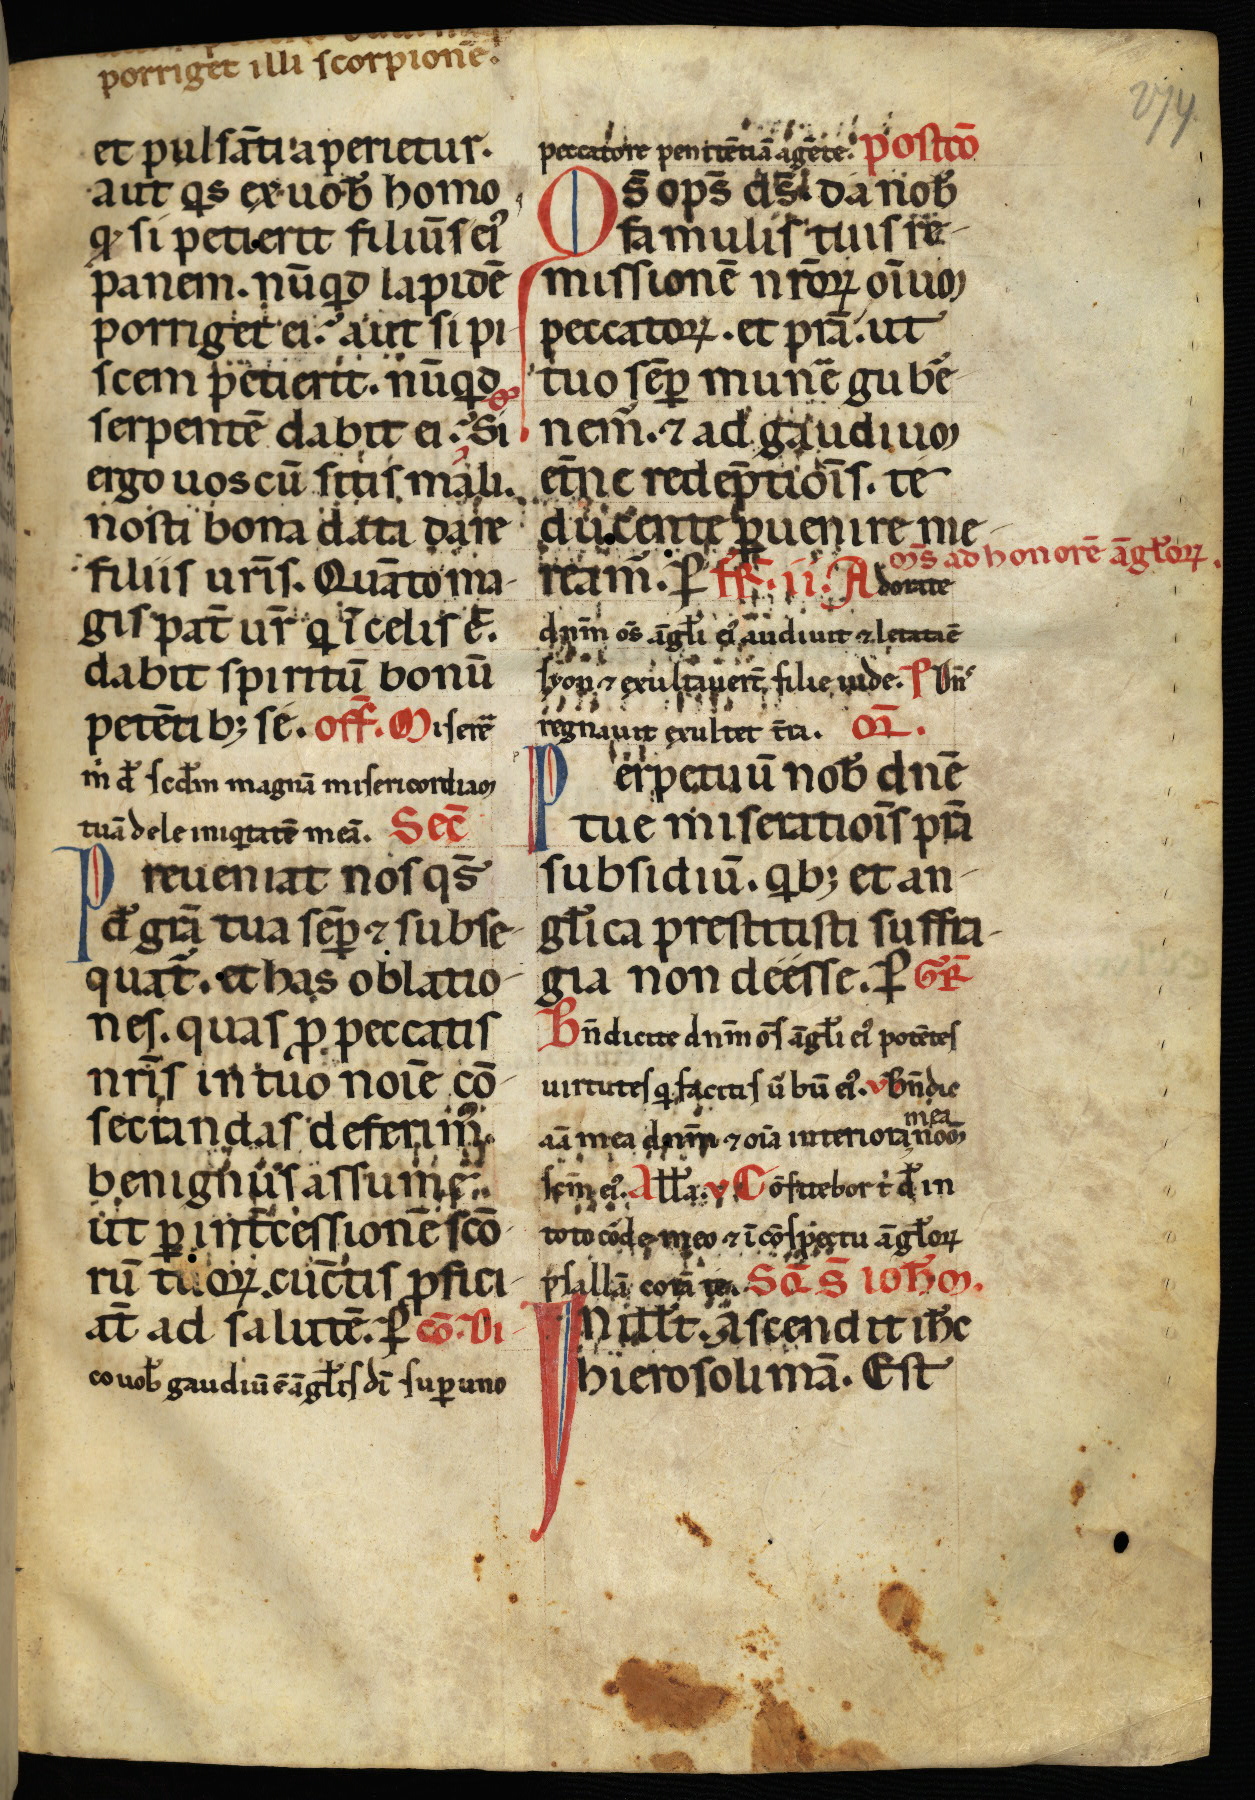 porriget illi scorpionē.
et pulsāti aperietur.
aut qs ex uob homo
q si petierit filiūs ei
panem. nūqd lapidē
porriget ei. aut si pi
scem petierit. nūqd
serpentē dabit ei. Si
ergo uos cū sitis mali.
nosti bona data dare
filiis urīs. Quāto ma-
gis pat̄ ur̄ q ī celis ē.
dabit spiritū bonū
petētib; se. off. Miserē
m d̄ scdm magnā misericordiam
tuā dele iniqtatē meā. Sec̄
Preueniat nos qs̄
d̄ gra tua sēp ⁊ subse-
quat̄. et has oblatio-
nes. quas p peccatis
nrīs in tuo noīe cō-
secrandas deferim.
benignus assume.
ut p int̄cessionē scō-
rū tuoꝝ. cūctis pfici-
at̄ ad salutē. P cō. Di-
co uob gaudiū ē āglis dī sup uno
peccatore penitētiā agēte. postcō
Os̄ ops̄ ds̄. da nob
famulis tuis re-
missionē nrōꝝ oīum
peccatoꝝ. et prā. ut
tuo sēp munē gubē-
nem̄. ⁊ ad gaudium
et̄ne redēptiōis. te
ducente puenire me-
ream̄. P fr̄. ii. Adorate
m̄s ad honorē āgloꝝ.
dnm os̄ āgli ei audiuit ⁊ letata ē
syon ⁊ exultauert̄ filie iude. P Dn̄s
regnauit exultet t̄ra. OR̄.
Perpetuū nob dnē
tue miseratiōis prā
subsidiū. qb; et an-
glica prestitisti suffra-
gia non deesse. P GR̄
Bn̄dicite dnm os̄ āgli ei potētes
uirtutes q facitis ūbū ei. v Bn̄dic
aīa mea dnm ⁊ oīa interiora mea nom̄
scm̄ ei. All̄a. v Cōfitebor t d̄ in
toto corde meo ⁊ ī cōspectu āgloꝝ
psallā corā te. Sc̄d S̄ Ioh̄m.
IN ill̄ t̄. Ascendit ih̄c
hierosolimā. Est